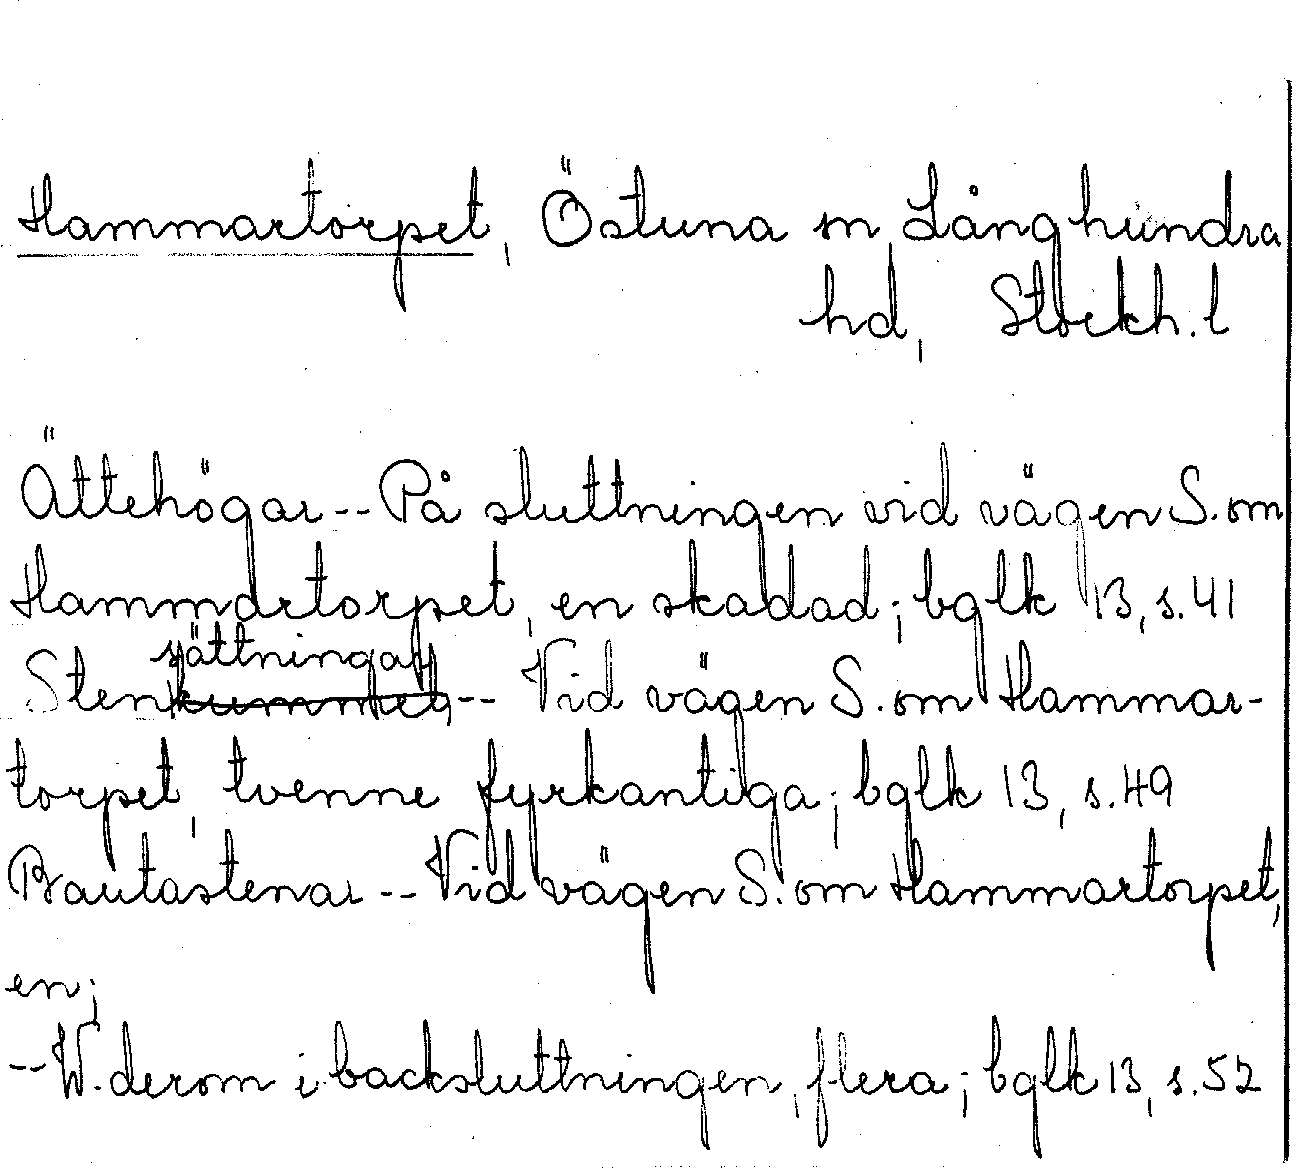 Hammartorpet, Östuna sn, Långhundra
hd, Stockh. l
Ättehögar -- På sluttningen vid vägen S. om
Hammartorpet, en skadad; bglk 13, s. 41
sättningar
Stenkummel, -- Vid vägen S. om Hammar-
torpet, tvenne fyrkantiga; bglk 13, s. 49
Bautastenar -- Vid vägen S. om Hammartorpet,
en;
-- W. derom i backsluttningen, flera; bglk 13, s. 52